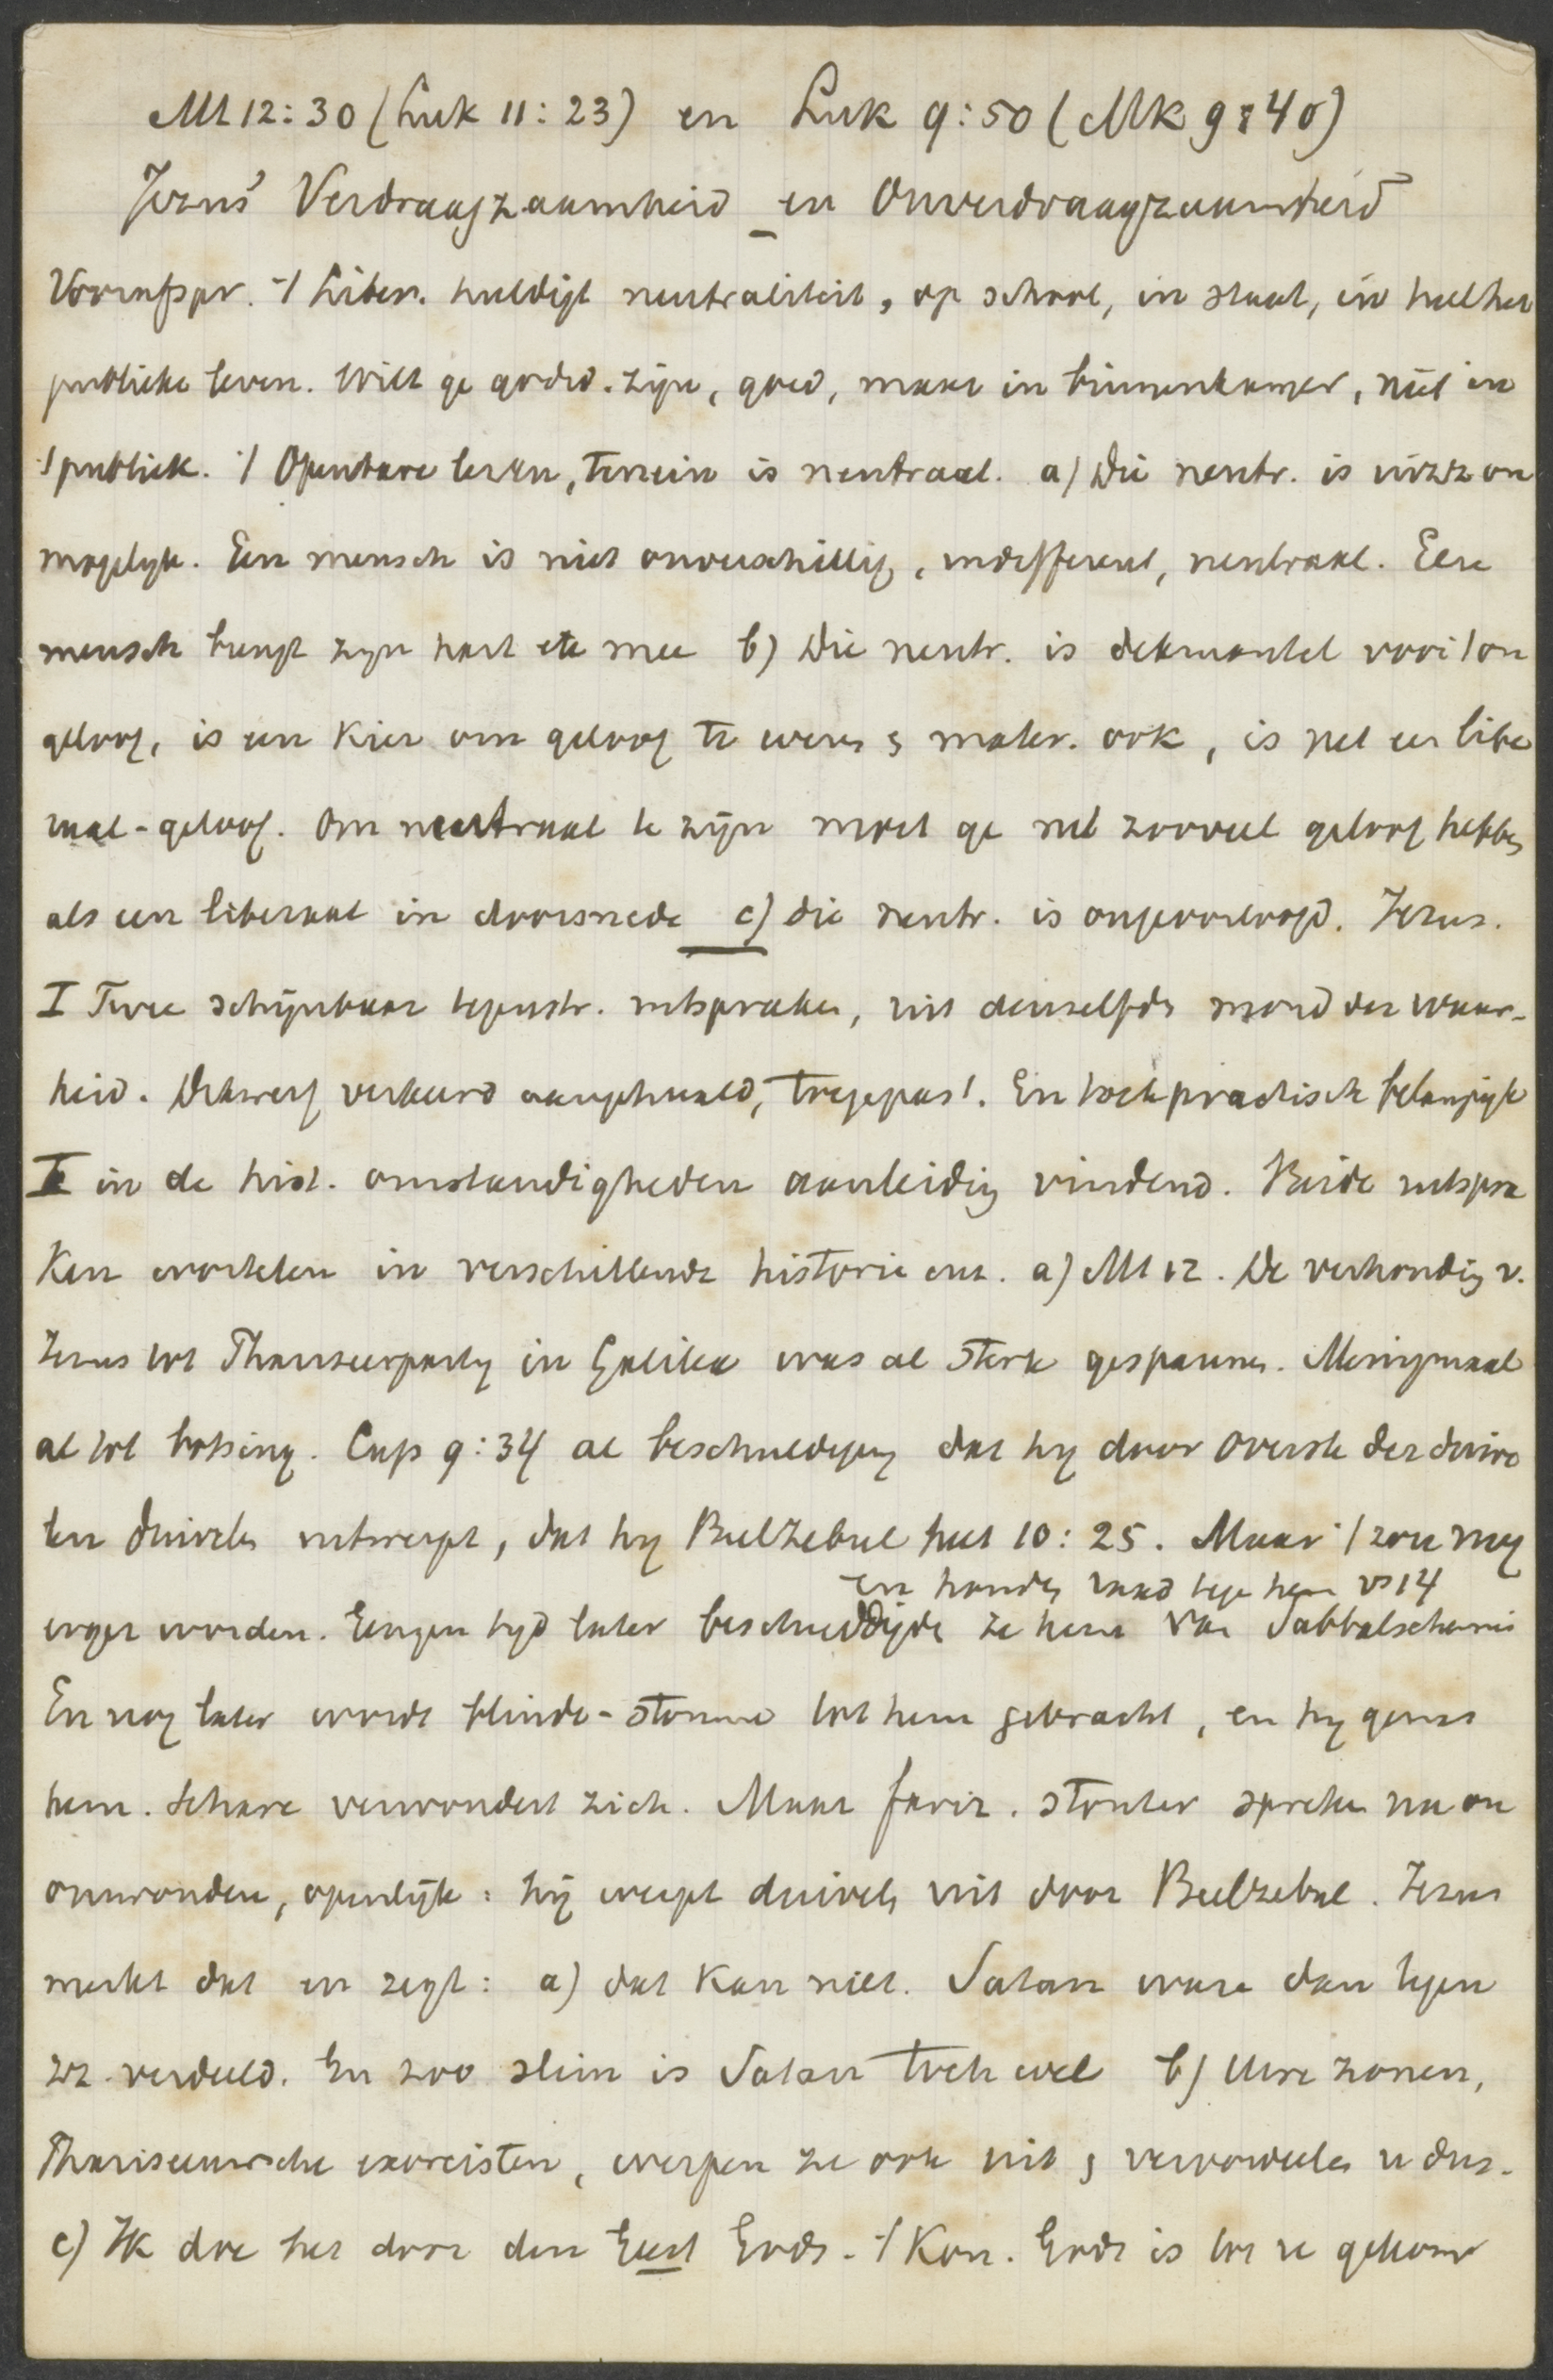 Mt 12:30 (Luk 11:23) en Luk 9:50 (Mk 9:40)
Jezus' Verdraagzaamheid en Onverdraagzaamheid
Voorafspr. ·/ Liber. huldigt neutraliteit, op school, in staat, in heel het
publieke leven. Wilt ge godsd. zijn, goed, maar in binnenkamer, niet in
·/ publiek. ·/ Openbare leven, terrein is neutraal. a) Die neutr. is on
mogelijk. Een mensch is niet onverschillig, indifferent, neutraal. Elke
mensch brengt zijn hart etc mee b) Die neutr. is dekmantel voor /on
geloof, is een Kier om geloof te weren; maakt. ook, is net een libe
raal-geloof. Om neutraal te zijn moet ge net zooveel geloof hebben
als een liberaal in doorsnede c) die neutr. is ongeoorloofd. Jezus.
I Twee schijnbaar tegenstr. uitspraken, uit denzelfden mond der waar-
heid. Dikwerf verkeerd aangehaald, toegepast. En toch practisch belangrijk
I in de hist. omstandigheden aanleiding vindend. Beide uitspra
Ken wortelen in verschillende historie enz. a) Mt 12. De verhouding v.
Jezus tot Pharizeerparty in Galilea was al sterk gespannen. Menigmaal
al tot botsing. Cap 9:34 al beschuldiging dat hy door overste der duive
len duivelen uitwerpt, dat hy Beelzebul heet 10:25. Maar ·/ zou nog
en houden raad tege hem vs 14
erger worden. Eenigen tyd later beschuldigde ze hem van Sabbatschennis
En nog later wordt blinde-stomme tot hem gebracht, en hy genas
hem. Schare verwondert zich. Maar fariz. stouter spreken nu on
omwonden, openlijk: hij werpt duivels uit door Beelzebul. Jezus
merkt dat en zegt: a) dat Kan niet. Satan ware dan tegen
zz. verdeeld. En zoo slim is Satan toch wel b) Uwe zonen,
Phariseeuwsche exorcisten, werpen ze ook uit; veroordeelen u dus.
c) Ik doe het door den Geest Gods. ·/ Kon. Gods is tot u gekomen